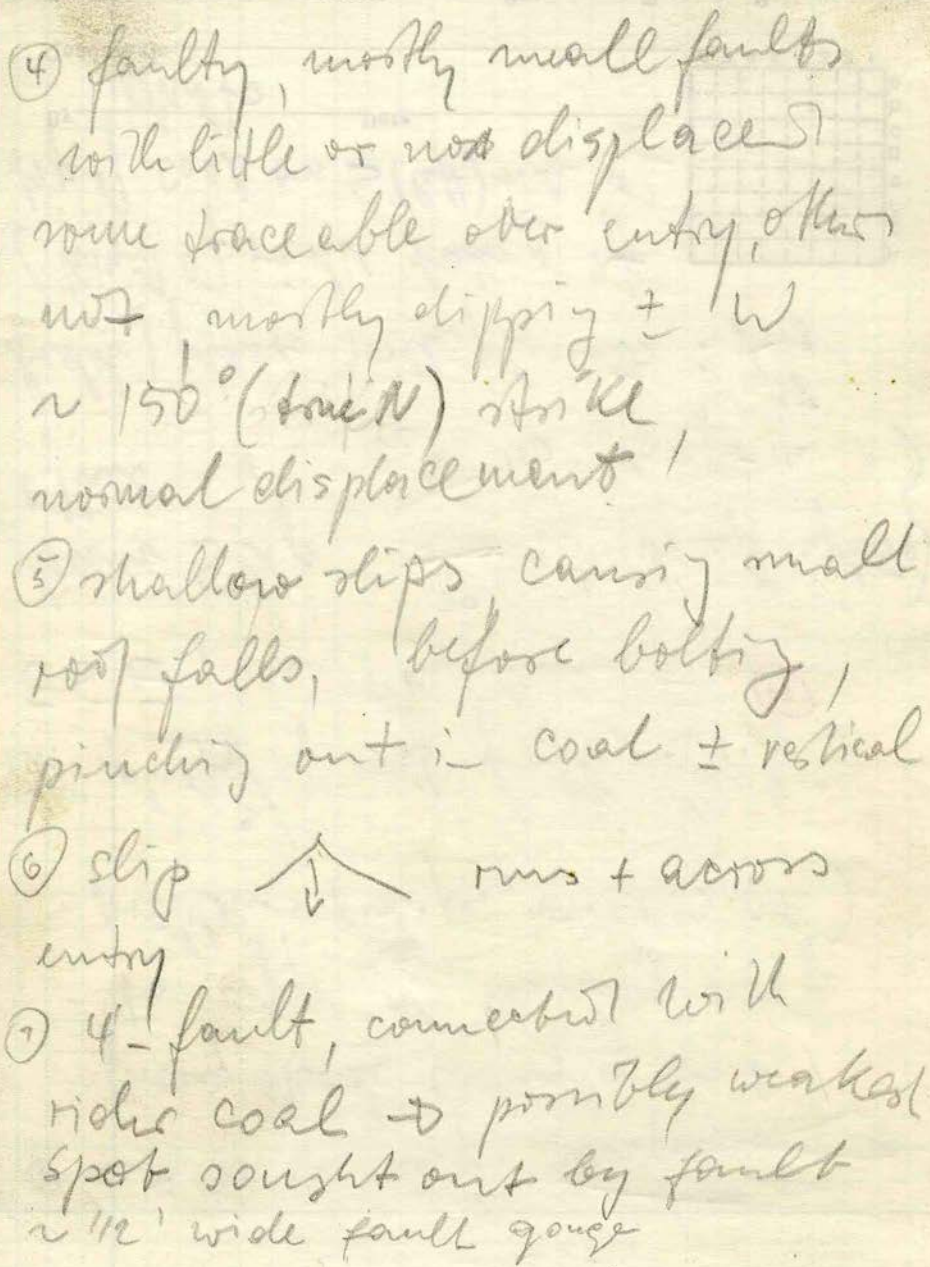 ④ faulty, mostly small faults
with little or no displaced
some traceable over entry, others
not, mostly dipping ± W
~ 150° (true N) strike,
normal displacement
⑤ shallow slips, causing small
roof falls, before bolting,
pinching out in coal ± vertical
⑥ slip runs ± across
entry
⑦ 4- fault, connected with
rider coal → possibly weakest
spot sought out by fault
~ 1/2' wide fault gouge